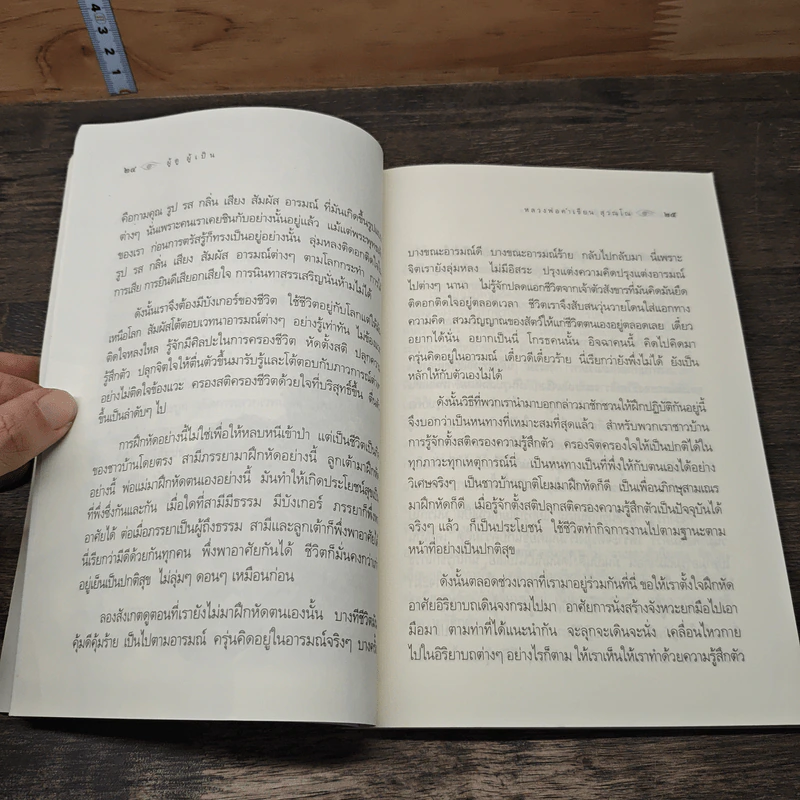 4
3
2
1
๒๔ ผู้รู้ ผู้เป็น
คือกามคุณ รูป รส กลิ่น เสียง สัมผัส อารมณ์ ที่มันเกิดขึ้น
ต่างๆ นั่นเพราะคนเราเคยชินกับอย่างนั้นอยู่แล้ว แม้แต่พระพุทธ
ของเรา ก่อนการตรัสรู้ก็ทรงเป็นอยู่อย่างนั้น ลุ่มหลงติดอกติดใจ
รูป รส กลิ่น เสียง สัมผัส อารมณ์ต่างๆ ตามโลกกระทำ การได้
การเสีย การยินดีเสียอกเสียใจ การนินทาสรรเสริญนั่นห้ามไม่ได้
ดังนั้นเราจึงต้องมีบังเกอร์ของชีวิต ใช้ชีวิตอยู่กับโลกแต่ให้
เหนือโลก สัมผัสโต้ตอบเวทนาอารมณ์ต่างๆ อย่างรู้เท่าทัน ไม่ข้อง
ติดใจหลงใหล รู้จักมีศิลปะในการครองชีวิต หัดตั้งสติ ปลุกความ
รู้สึกตัว ปลุกจิตใจให้ตื่นตัวขึ้นมารับรู้และโต้ตอบกับภาวการณ์ต่างๆ
อย่างไม่ติดใจข้องแวะ ครองสติครองชีวิตด้วยใจที่บริสุทธิ์ขึ้น
ขึ้นเป็นลำดับๆ ไป
การฝึกหัดอย่างนี้ไม่ใช่เพื่อให้หลบหนีเข้าป่า แต่เป็นชีวิตเป็น
ของชาวบ้านโดยตรง สามีภรรยามาฝึกหัดอย่างนี้ ลูกเต้ามาฝึกหัด
อย่างนี้ พ่อแม่มาฝึกหัดตนเองอย่างนี้ มันทำให้เกิดประโยชน์สุขเป็น
ที่พึ่งซึ่งกันและกัน เมื่อใดที่สามีมีธรรม มีบังเกอร์ ภรรยาก็พึ่งพา
อาศัยได้ ต่อเมื่อภรรยาเป็นผู้ถึงธรรม สามีและลูกเต้าก็พึ่งพาอาศัย
นี่เรียกว่ามีดีด้วยกันทุกคน พึ่งพาอาศัยกันได้ ชีวิตก็มั่นคงกว่า
อยู่เย็นเป็นปกติสุข ไม่ลุ่มๆ ดอนๆ เหมือนก่อน
ลองสังเกตดูตอนที่เรายังไม่มาฝึกหัดตนเองนั้น บางทีชีวิต
คุ้มดีคุ้มร้าย เป็นไปตามอารมณ์ ครุ่นคิดอยู่ในอารมณ์จริงๆ บางครั้ง
หลวงพ่อคำเขียน สุวณฺโณ ๒๕
บางขณะอารมณ์ดี บางขณะอารมณ์ร้าย กลับไปกลับมา นี่เพราะ
จิตเรายังลุ่มหลง ไม่มีอิสระ ปรุงแต่งความคิดปรุงแต่งอารมณ์
ไปต่างๆ นานา ไม่รู้จักปลดแอกชีวิตจากเจ้าตัวสังขารที่มันคิดมันยึด
ติดอกติดใจอยู่ตลอดเวลา ชีวิตเราจึงสับสนวุ่นวายโดนใส่แอกทาง
ความคิด สวมวิญญาณของสัตว์ให้แก่ชีวิตตนเองอยู่ตลอดเลย เดี๋ยว
อยากได้นั่น อยากเป็นนี่ โกรธคนนั้น อิจฉาคนนี้ คิดไปคิดมา
ครุ่นคิดอยู่ในอารมณ์ เดี๋ยวดีเดี๋ยวร้าย นี่เรียกว่ายังพึ่งไม่ได้ ยังเป็น
หลักให้กับตัวเองไม่ได้
ดังนั้นวิธีที่พวกเรานำมาบอกกล่าวมาชักชวนให้ฝึกปฏิบัติกันอยู่นี้
จึงบอกว่าเป็นหนทางที่เหมาะสมที่สุดแล้ว สำหรับพวกเราชาวบ้าน
การรู้จักตั้งสติครองความรู้สึกตัว ครองจิตครองใจให้เป็นปกติได้ใน
ทุกภาวะทุกเหตุการณ์นี้ เป็นหนทางเป็นที่พึ่งให้กับตนเองได้อย่าง
วิเศษจริงๆ เป็นชาวบ้านญาติโยมมาฝึกหัดก็ดี เป็นเพื่อนภิกษุสามเณร
มาฝึกหัดก็ดี เมื่อรู้จักตั้งสติปลุกสติครองความรู้สึกตัวเป็นปัจจุบันได้
จริงๆ แล้ว ก็เป็นประโยชน์ ใช้ชีวิตทำกิจการงานไปตามฐานะตาม
หน้าที่อย่างเป็นปกติสุข
ดังนั้นตลอดช่วงเวลาที่เรามาอยู่ร่วมกันที่นี่ ขอให้เราตั้งใจฝึกหัด
อาศัยอิริยาบถเดินจงกรมไปมา อาศัยการนั่งสร้างจังหวะยกมือไปเอา
มือมา ตามท่าที่ได้แนะนำกัน จะลุกจะเดินจะนั่ง เคลื่อนไหวกาย
ไปในอิริยาบถต่างๆ อย่างไรก็ตาม ให้เราเห็นให้เราทำด้วยความรู้สึกตัว